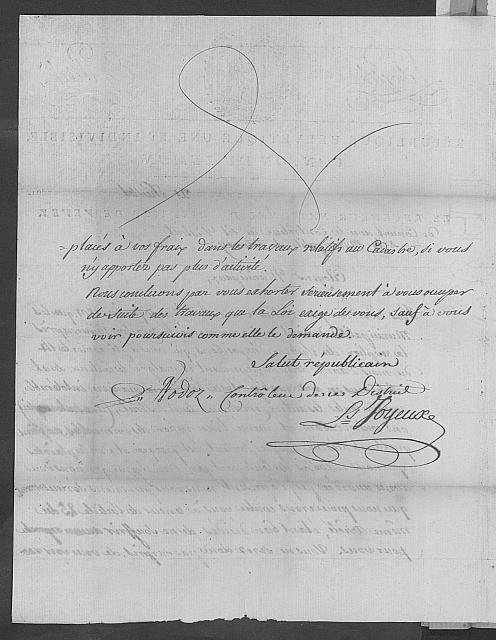 =placés à vos fraix dans les travaux relatifs au Cadastre, si vous
n'y apportez pas plus d'activité.
Nous concluons par vous exhorter serieusement à vous occuper
de suite des travaux que la Loi exige de vous, sauf à vous
voir poursuivis comme elle le demande.
Salut républicain
Dodoz Contrôleur de ce District
Ls Joyeux